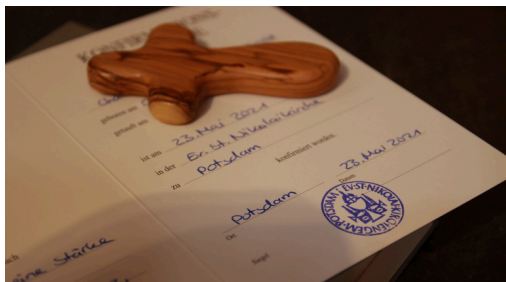 geboren am
getauft am
ist am 23. Mai 2021
in der Ev. St. Nikolaikirche
zu Potsdam konfirmiert worden.
Potsdam 23. Mai 2021
Ort Datum
Siegel
EV. ST. NIKOLAI KIRCHENGEM. POTSDAM
Stärke